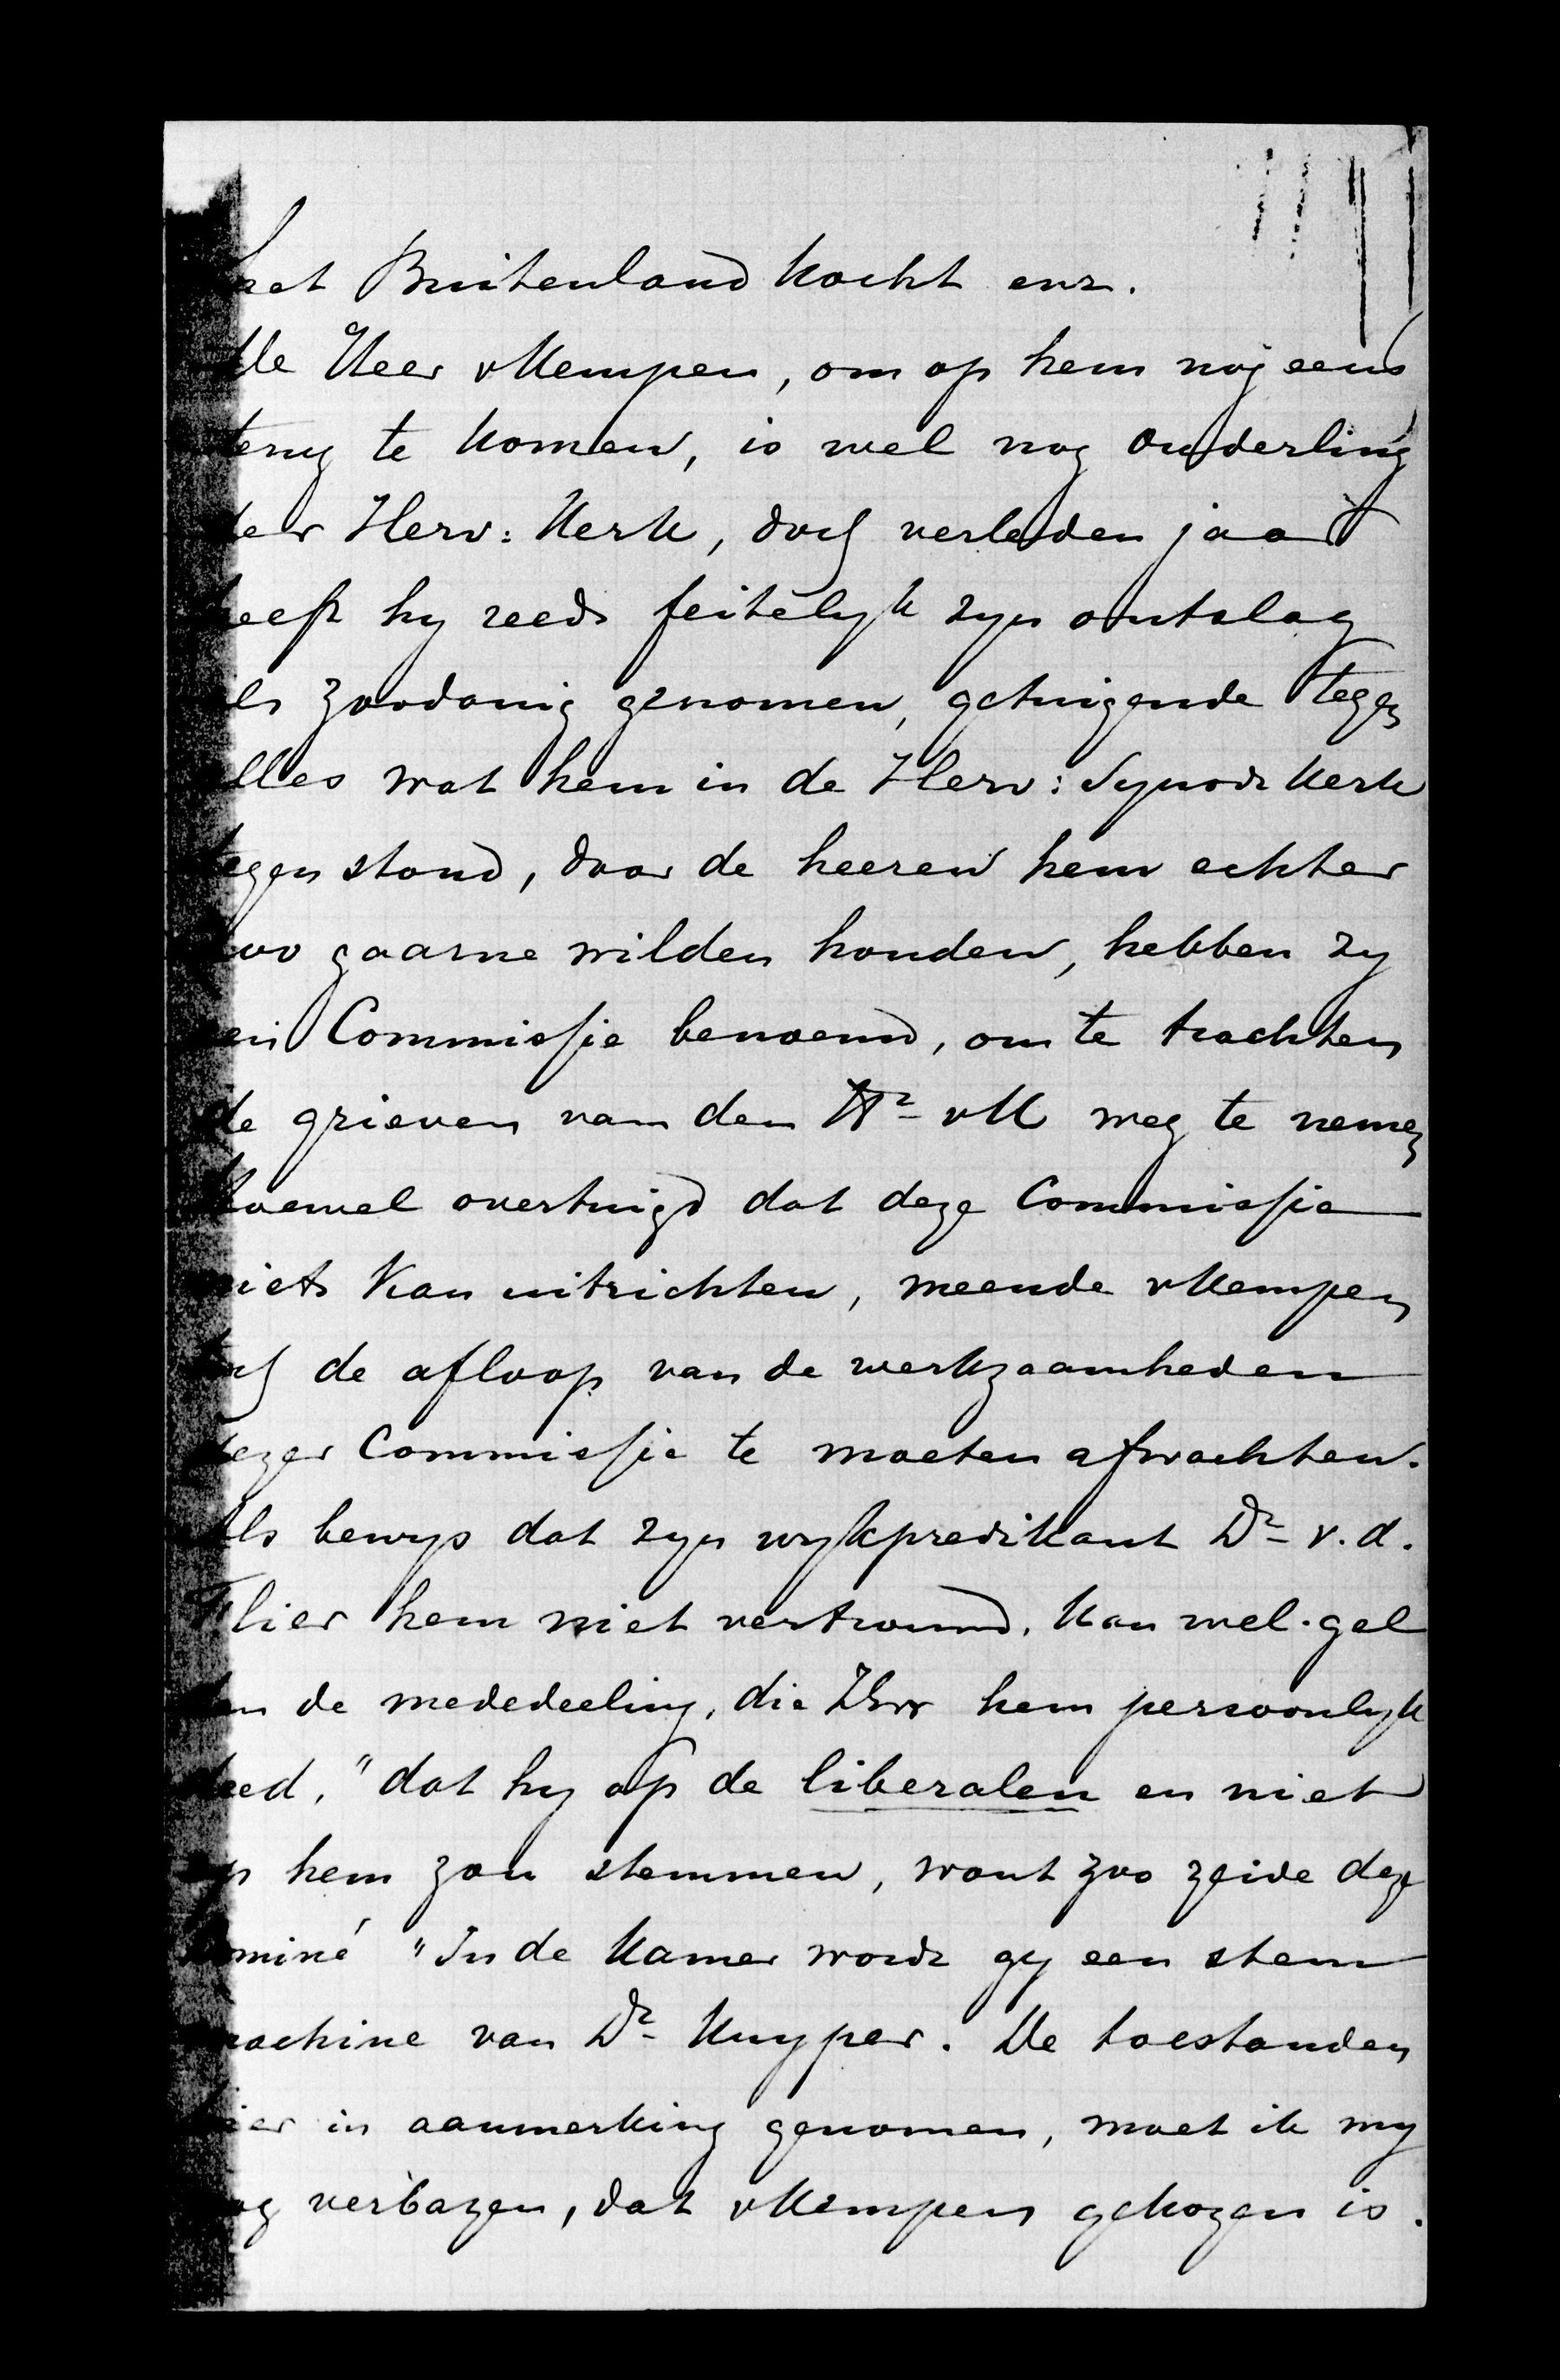 het Buitenland kocht enz.
De Heer vKempen, om op hem nog eens
terug te komen, is wel nog Ouderling
der Herv: Kerk, doch verleden jaar
heeft hy reeds feitelyk zyn ontslag
als zoodanig genomen, getuigende tegen
alles wat hem in de Herv: Synod: Kerk
tegen stond, daar de heeren hem echter
zoo gaarne wilden houden, hebben zy
een Commissie benoemd, om te trachten
de grieven van den Hr vK weg te nemen
hoewel overtuigd dat deze Commissie
niets kan uitrichten, meende vKempen
toch de afloop van de werkzaamheden
dezer Commissie te moeten afwachten.
Als bewys dat zyn wykpredikant Dr v.d.
Flier hem niet vertrouwd, kan wel gel
den de mededeeling, die hem persoonlyk
deed, "dat hy op de liberalen en niet
op hem zou stemmen, want zoo zeide deze
dominé "In de Kamer wordt gy een stem
machine van Dr Kuyper. De toestanden
hier in aanmerking genomen, moet ik my
nog verbazen, dat vKempen gekozen is.